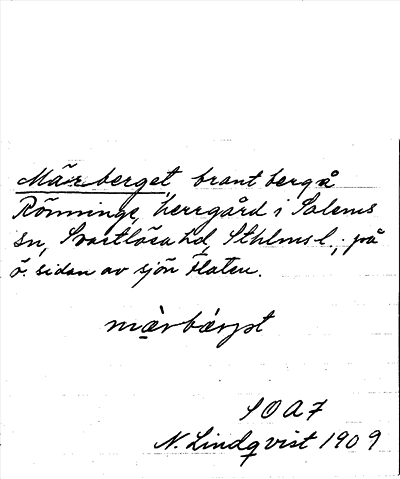 Märberget, brant berg å
Rönninge, herrgård i Salems
sn, Svartlösa hd, Sthlms l.; på
ö. sidan av sjön Flaten.
mä̀rbärjət
SOAF
N. Lindqvist 1909